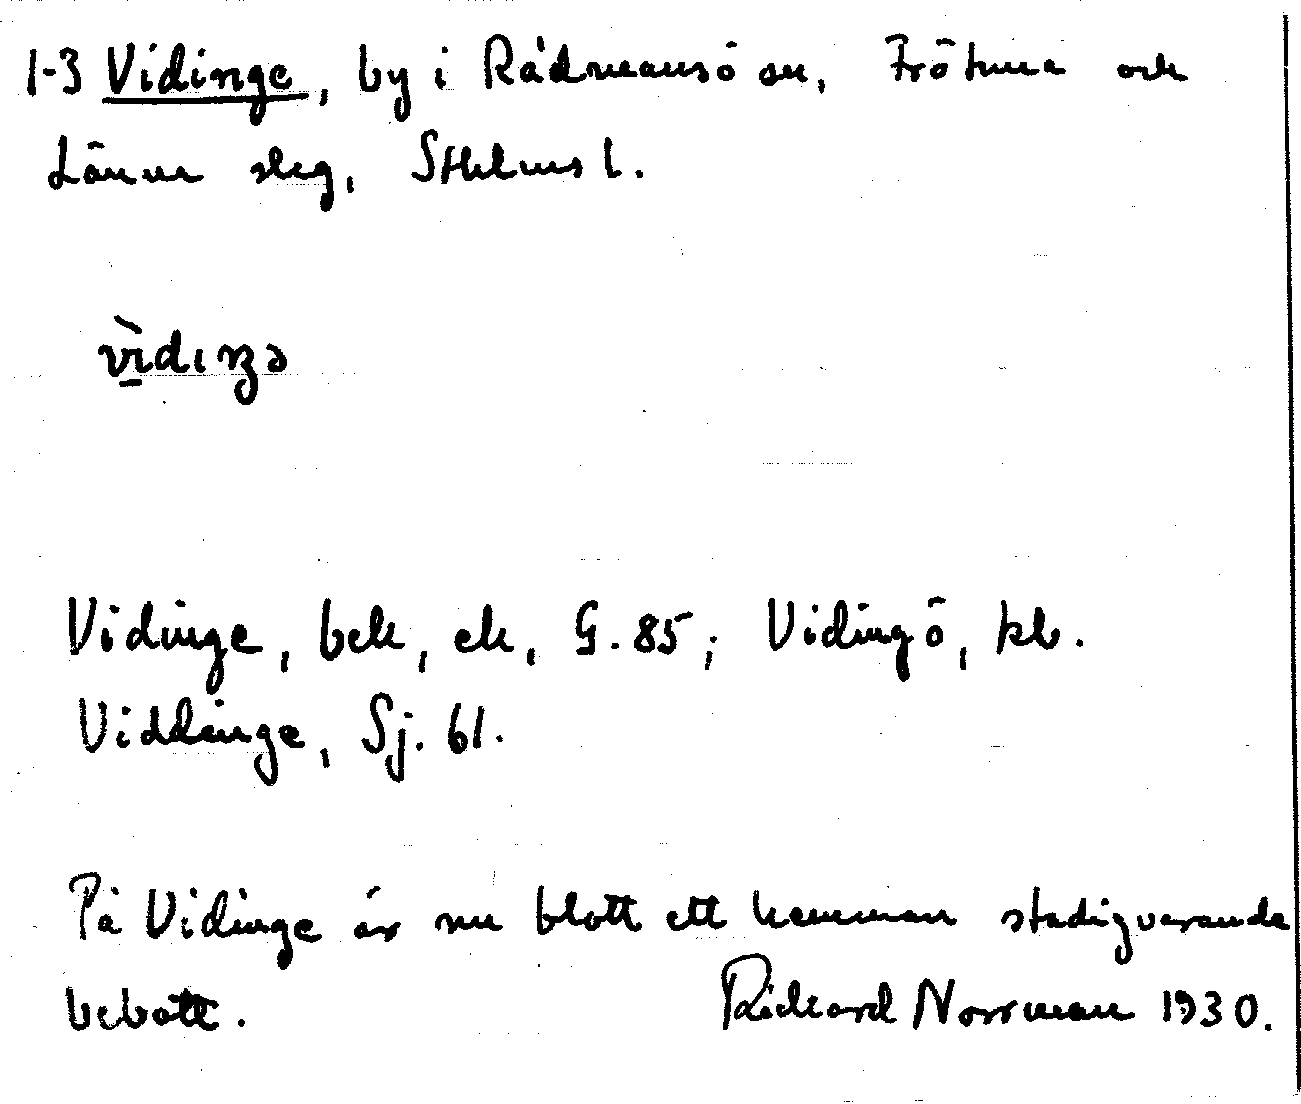 1-3 Vidinge, by i Rådmansö sn, Frötuna och
Länna slag, Sthlms l.
vìdıŋə
Vidinge, bek, ek, G. 85; Vidingö, kb.
Viddinge, Sj. 61.
På Vidinge är nu blott ett hemman stadigvarande
bebott. Rickard Norrman 1930.